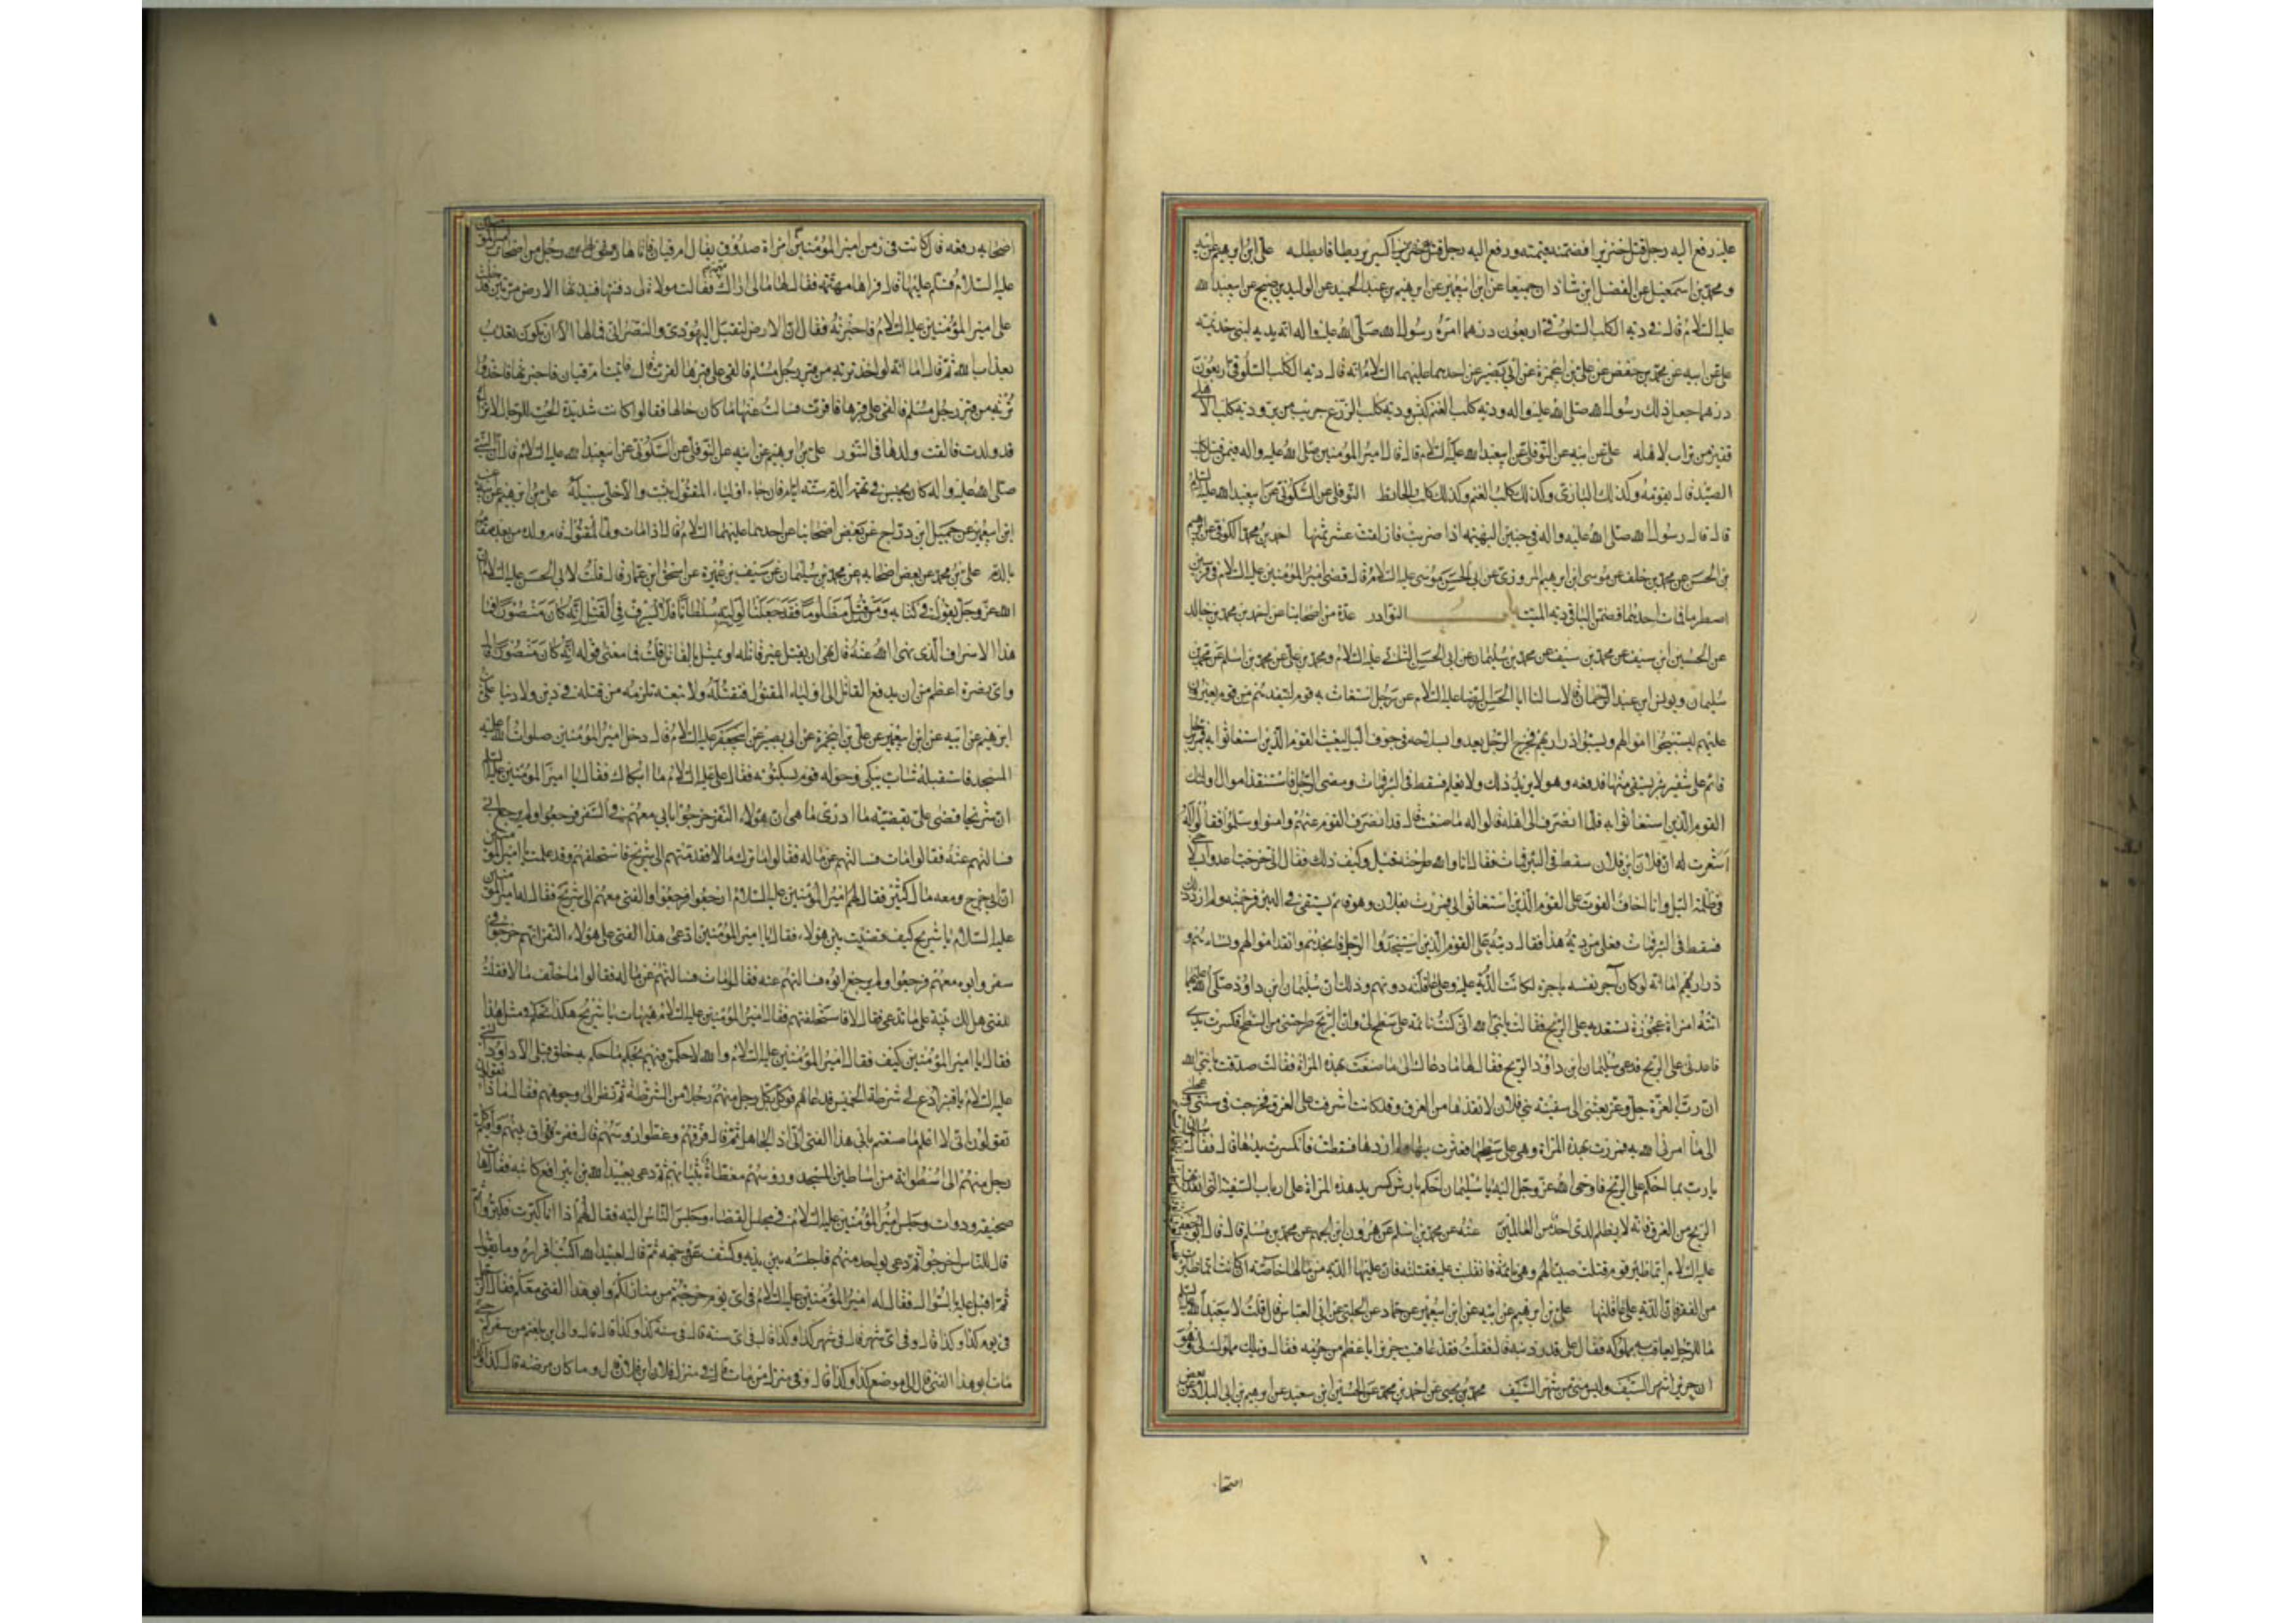 عليه رفع اليه رجل قتل خنزيرا فضمنه قيمته ورفع اليه رجل كسر بربطا فابطله علي ابن ابرهيم عن ابيه
ومحمد بن اسمعيل عن الفضل ابن شاذان جميعا عن ابن ابيعمير عن ابرهيم بن عبد الحميد عن الوليد بن صبيح عن ابيعبد الله
عليه السلام قال في دية الكلب السلوقي اربعون درهما امره رسول الله صلى الله عليه واله ان يديه لبني خذيمه
علي عن ابيه عن محمد بن حفص عن علي بن ابيحمزة عن ابي بصير عن احدهما عليهما السلام انه قال دية الكلب السلوقي اربعون
درهما جعل ذلك رسول الله صلى الله عليه واله ودية كلب الغنم كبش ودية كلب الزرع جريب من بر ودية كلب الاهلي
قفيز من تراب لاهله علي عن ابيه عن النوفلي عن ابيعبد الله عليه السلام قال قال امير المؤمنين صلى الله عليه واله فيمن قتل كلب
الصيد قال يقومه وكذلك البازي وكذلك كلب الغنم وكذلك كلب الحايط النوفلي عن السكوني عن ابيعبد الله عليه السلم
قال قال رسول الله صلى الله عليه واله في جنين البهيمه اذا ضربت فازلقت عشر ثمنها احمد بن محمد الكوفي عن ابرهيم
بن الحسن عن محمد بن خلف عن موسى ابن ابرهيم المروزي عن ابي الحسن موسى عليه السلام قال قضى امير المؤمنين عليه السلام في فرسين
اصطدما فمات احدهما فضمن الباقي دية الميت باب النوادر عدة من اصحابنا عن احمد بن محمد بن خالد
عن الحسين ابن سيف عن محمد بن سليمان عن ابي الحسن الثاني عليه السلام ومحمد بن علي عن محمد بن اسلم عن محمد بن
سليمان ويونس ابن عبد الرحمان قالا سالنا ابا الحسن الرضا عليه السلام عن رجل استغاث به قوم لينقذهم من قوم يغيرون
عليهم ليستبيحوا اموالهم ويسبوا ذراريهم فخرج الرجل يعدو بسلاحه في جوف الليل ليغيث القوم الذين استغاثوا به فمر برجل
قائم على شفير بئر يستقي منها فدفعه وهو لا يريد ذلك ولا يعلم فسقط في البئر فمات ومضى الرجل فاستنقذ اموال اولئك
القوم الذين استغاثوا به فلما انصرف الى اهله قالوا له ما صنعت قال قد انصرف القوم عنهم وامنوا وسلموا فقالوا له
اشعرت له ان فلان ابن فلان سقط في البئر فمات فقال انا والله طرحته قيل وكيف ذلك فقال اني خرجت اعدو بسلاحي
في ظلمة الليل وانا اخاف الفوت على القوم الذين استغاثوا بي فمررت بفلان وهو قائم يستقي في البئر فزحمته ولم ارد ذلك
فسقط في البئر فمات فعلى من دية هذا فقال ديته على القوم الذين استنجدوا الرجل فانجدهم وانقذ اموالهم ونساءهم و
ذراريهم اما انه لو كان آجر نفسه باجرة لكانت الدية عليه وعلى عاقلته دونهم وذلك ان سليمان ابن داود صلى الله عليهما
اتته امراة عجوزة تستعديه على الريح فقالت يا نبي الله اني كنت نائمة على سطح لي وان الريح طرحتني من السطح فكسرت يدي
فاعدني على الريح فدعى سليمان ابن داود الريح فقال لها ما دعاك الى ما صنعت بهذه المراة فقالت صدقت يا نبي الله
ان رب العزة جل وعز بعثني الى سفينة بني فلان لانقذها من الغرق وقد كانت اشرفت على الغرق فخرجت في سنني وعجلتي
الى ما امرني الله به فمررت بهذه المراة وهي على سطحها فعثرت بها ولم اردها فسقطت فانكسرت يدها قال فقال
يا رب بما احكم على الريح فاوحى الله عز وجل اليه يا سليمان احكم بارش كسر يد هذه المراة على ارباب السفينة التي انقذتها
الريح من الغرق فانه لا يظلم لدي احد من العالمين عنه عن محمد بن اسلم عن هرون ابن الجهم عن محمد بن مسلم قال قال ابو جعفر
عليه السلام ايما ظئر قوم قتلت صبيا لهم وهي نائمة فانقلبت عليه فقتلته فان عليها الدية من مالها خاصة ان كانت انما ظائرت
من الفقر فان الدية على عاقلتها علي بن ابرهيم عن ابيه عن ابن ابيعمير عن حماد عن الحلبي عن ابي العباس قال قلت لابيعبد الله عليه السلم
ما للرجل يعاقب به مملوكه فقال على قدر ذنبه قال فقلت فقد عاقبت حريزا باعظم من جرمه فقال ويلك مملوك لي هو
ان حريزا شهر السيف وليس مني من شهر السيف محمد بن يحيى عن احمد بن محمد عن الحسين ابن سعيد عن ابرهيم بن ابي البلاد عن بعض
اصحا
اصحابه رفعه قال كانت في زمن امير المؤمنين امراة صدوق يقال لها ام قيان فاتاها رجل من اصحاب امير المؤ منين
عليه السلام فسلم عليها قال فراها مهتمة فقال لها مالي اراك مهتمة فقالت مولاة لي دفنتها فنبذتها الارض مرتين فدخلت
على امير المؤمنين عليه السلام فاخبرته فقال ان الارض لتقبل اليهودي والنصراني فما لها الا ان تكون تعذب
بعذاب الله ثم قال اما انه لو اخذ تربة من قبر رجل مسلم فالقي على قبرها لقرت قال فاتيت ام قيان فاخبرتها فاخذوا
تربة من قبر رجل مسلم فالقي على قبرها فقرت فسالت عنها ما كان حالها فقالوا كانت شديدة الحب للرجال لا تزال
قد ولدت فالقت ولدها في التنور علي بن ابرهيم عن ابيه عن النوفلي عن السكوني عن ابيعبد الله عليه السلام قال ان النبي
صلى الله عليه واله كان يحبس في تهمة الدم ستة ايام فان جاء اولياء المقتول بثبت والا خلى سبيله علي بن ابرهيم عن ابيه عن
ابن ابيعمير عن جميل ابن دراج عن بعض اصحابنا عن احدهما عليهما السلام قال اذا مات ولي المقتول قام ولده من بعده مقامه
بالدم علي بن محمد عن بعض اصحابه عن محمد بن سليمان عن سيف بن عميرة عن اسحق ابن عمار قال قلت لابي الحسن عليه السلام ان
الله عز وجل يقول في كتابه ومن قتل مظلوما فقد جعلنا لوليه سلطانا فلا يسرف في القتل انه كان منصورا فما
هذا الاسراف الذي نهى الله عنه قال نهى ان يقتل غير قاتله او يمثل بالقاتل قلت فما معنى قوله انه كان منصورا قال
واي نصرة اعظم من ان يدفع القاتل الى اولياء المقتول فتقتله ولا تبعة تلزمه من قتله في دين ولا دنيا علي
ابن ابرهيم عن ابيه عن ابن ابيعمير عن علي بن ابيحمزة عن ابي بصير عن ابيجعفر عليه السلام قال دخل امير المؤمنين صلوات الله عليه
المسجد فاستقبله شاب يبكي وحوله قوم يسكتونه فقال علي عليه السلام ما ابكاك فقال يا امير المؤمنين
ان شريحا قضى علي بقضية ما ادري ما هي ان هؤلاء النفر خرجوا بابي معهم في السفر فرجعوا ولم يرجع ابي
فسالتهم عنه فقالوا مات فسالتهم عن ماله فقالوا ما ترك مالا فقدمتهم الى شريح فاستحلفهم وقد علمت يا امير المؤ منين
ان ابي خرج ومعه مال كثير فقال لهم امير المؤمنين عليه السلام ارجعوا فرجعوا والفتى معهم الى شريح فقال له امير المؤ منين
عليه السلام يا شريح كيف قضيت بين هؤلاء فقال يا امير المؤمنين ادعى هذا الفتى على هؤلاء النفر انهم خرجوا في
سفر وابوه معهم فرجعوا ولم يرجع ابوه فسالتهم عنه فقالوا مات فسالتهم عن ماله فقالوا ما خلف مالا فقلت
للفتى هل لك بينة على ما تدعي فقال لا فاستحلفتهم فقال امير المؤمنين عليه السلام هيهات يا شريح هكذا تحكم في مثل هذا
فقال يا امير المؤمنين كيف فقال امير المؤمنين عليه السلام والله لاحكمن فيهم بحكم ما حكم به خلق قبلي الا داود النبي
عليه السلام يا قنبر ادع لي شرطة الخميس فدعاهم فوكل بكل رجل منهم رجلا من الشرطة ثم نظر الى وجوههم فقال ماذا تقولون
تقولون اني لا اعلم ما صنعتم بابي هذا الفتى اني اذا لجاهل ثم قال فرقوهم وغطوا رؤسهم قال ففرق بينهم واقيم كل
رجل منهم الى اسطوانة من اساطين المسجد ورؤسهم مغطاة بثيابهم ثم دعى بعبيد الله بن ابي رافع كاتبه فقال هات
صحيفة ودواة وجلس امير المؤمنين عليه السلام في مجلس القضاء وجلس الناس اليه فقال لهم اذا انا كبرت فكبروا ثم
قال للناس اخرجوا ثم دعى بواحد منهم فاجلسه بين يديه وكشف عن وجهه ثم قال لعبيد الله اكتب اقراره وما يقول
ثم اقبل عليه بالسؤال فقال له امير المؤمنين عليه السلام في اي يوم خرجتم من منازلكم وابو هذا الفتى معكم فقال الرجل
في يوم كذا وكذا قال وفي اي شهر قال في شهر كذا وكذا قال في اي سنة قال في سنة كذا وكذا قال والى اين بلغتم من سفركم حتى
مات ابو هذا الفتى قال الى موضع كذا وكذا قال وفي منزل من مات قال في منزل فلان ابن فلان قال وما كان مرضه قال كذا وكذا